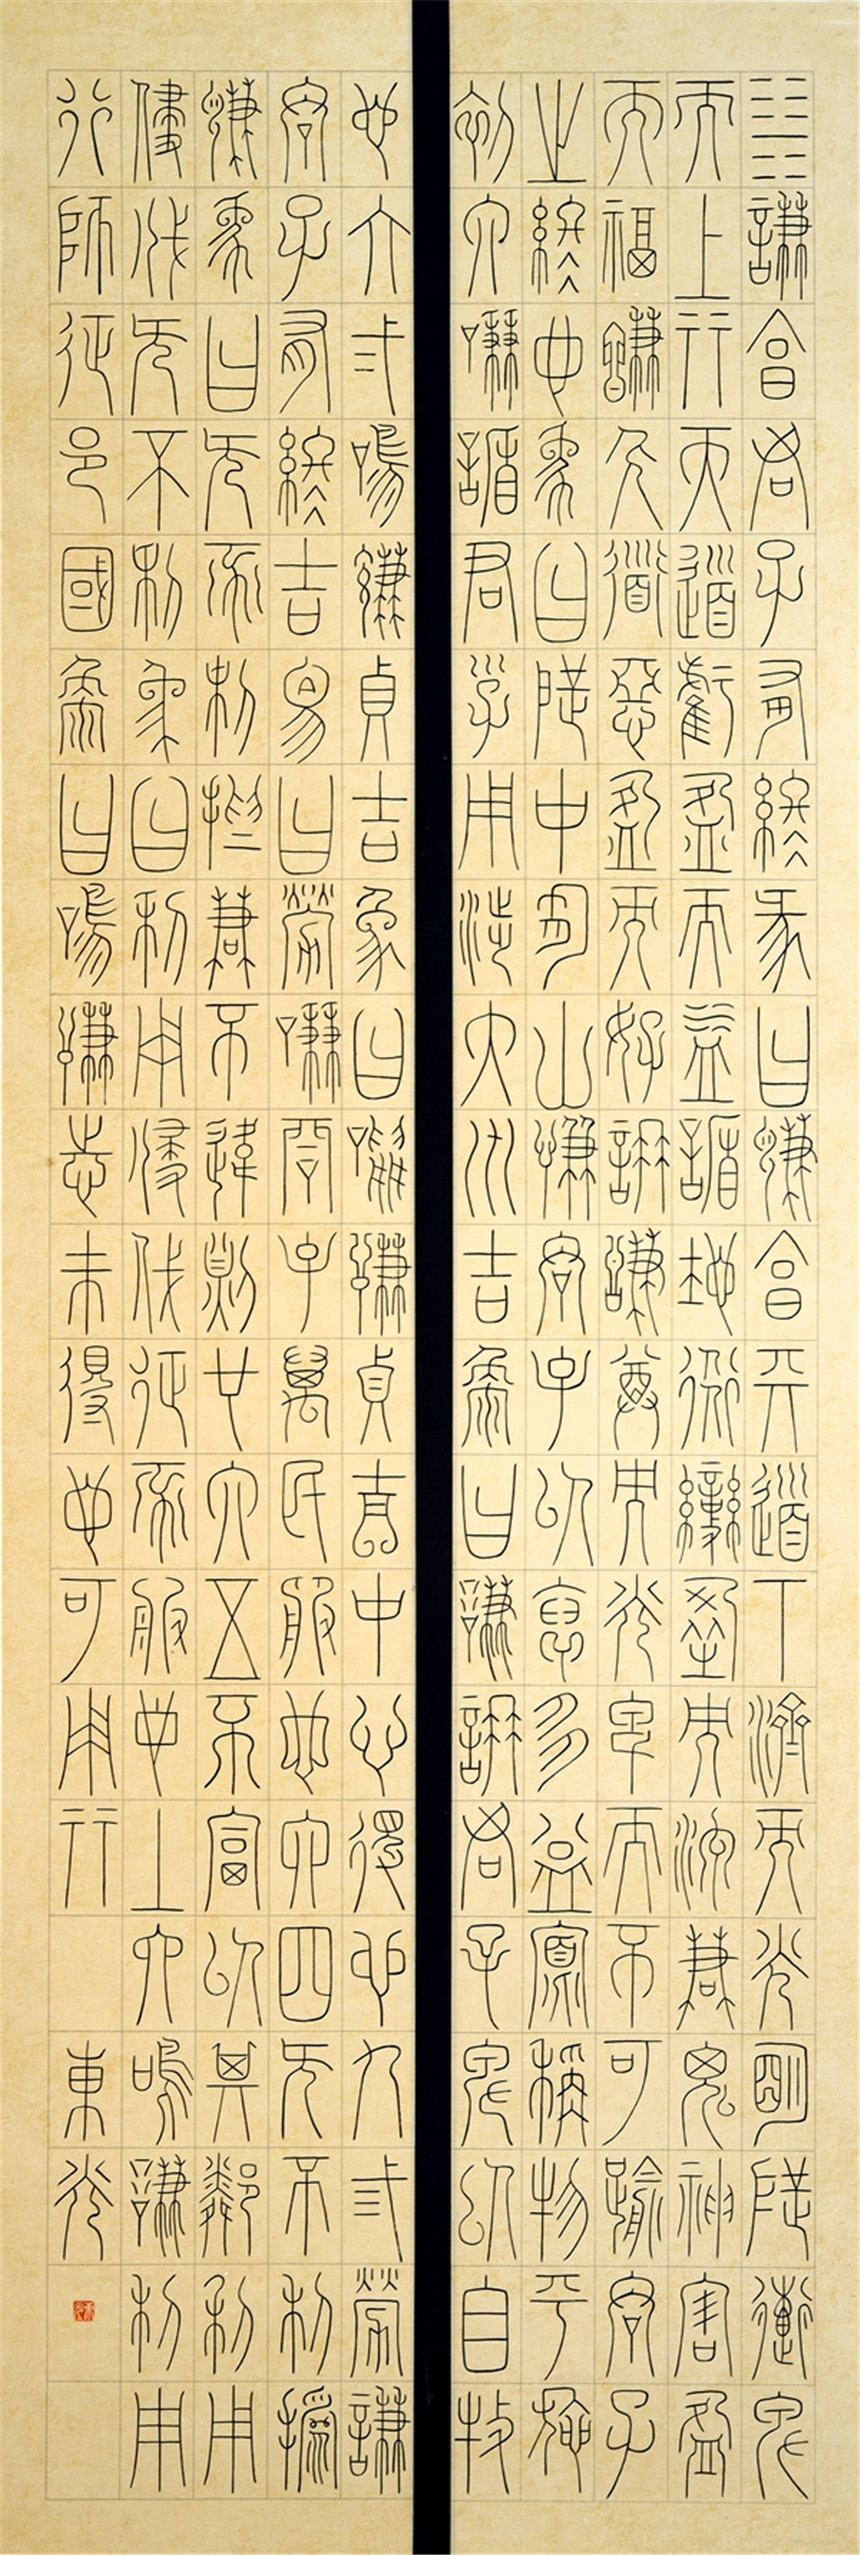 ䷎謙亨君子有終彖曰謙亨天道下濟而光明地道卑
而上行天道虧盈而益謙地道變盈而流謙鬼神害盈
而福謙人道惡盈而好謙謙尊而光卑而不可踰君子
之終也象曰地中有山謙君子以裒多益寡稱物平施
初六謙謙君子用涉大川吉象曰謙謙君子卑以自牧
也六二鳴謙貞吉象曰鳴謙貞吉中心得也九三勞謙
君子有終吉象曰勞謙君子萬民服也六四无不利撝
謙象曰无不利撝謙不違則也六五不富以其鄰利用
侵伐无不利象曰利用侵伐征不服也上六鳴謙利用
行師征邑國象曰鳴謙志未得也可用行
東光